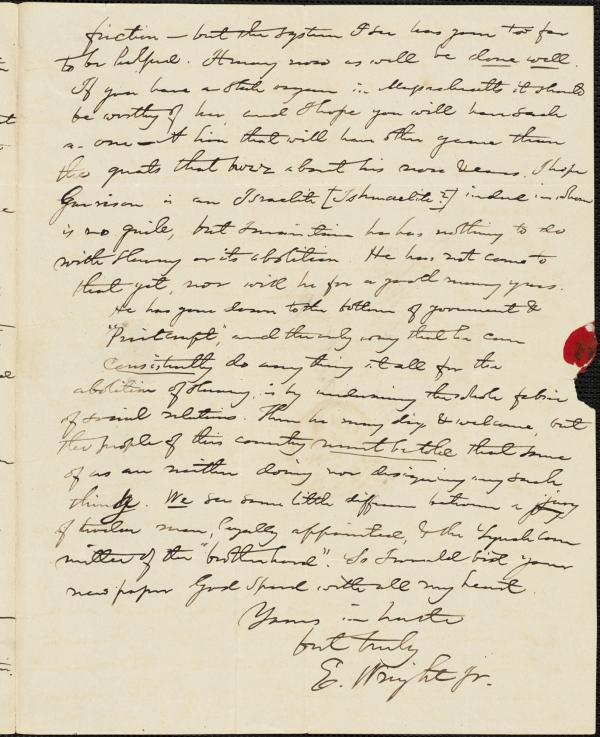 friction — but the system I see has gone too far
to be helped. Harmony now as well be done well.
If you have a State organ in Massachusetts it should
be worthy of her, and I hope you will have such
a one — A lion that will have other game than
the gnats that buzz about his nose & ears. I hope
Garrison is an Israelite [Ishmaelite?] indeed in whom
is no guile, but I maintain he has nothing to do
with Slavery or its abolition. He has not come to
that yet, nor will he for a good many years.
He has gone down to the bottom of government &
"Priestcraft", and the only way that he can
consistently do any thing at all for the
abolition of Slavery, is by undermining the whole fabric
of social relations. Then he may dig & welcome, but
the people of this country must be told that some
of us are neither doing nor designing any such
thing. We see some little difference between a jury
of twelve men, legally appointed, & the Lynch com
mittee of the "brotherhood". So I would bid your
newspaper God Speed with all my heart.
Yours in haste
but truly
E. Wright Jr.